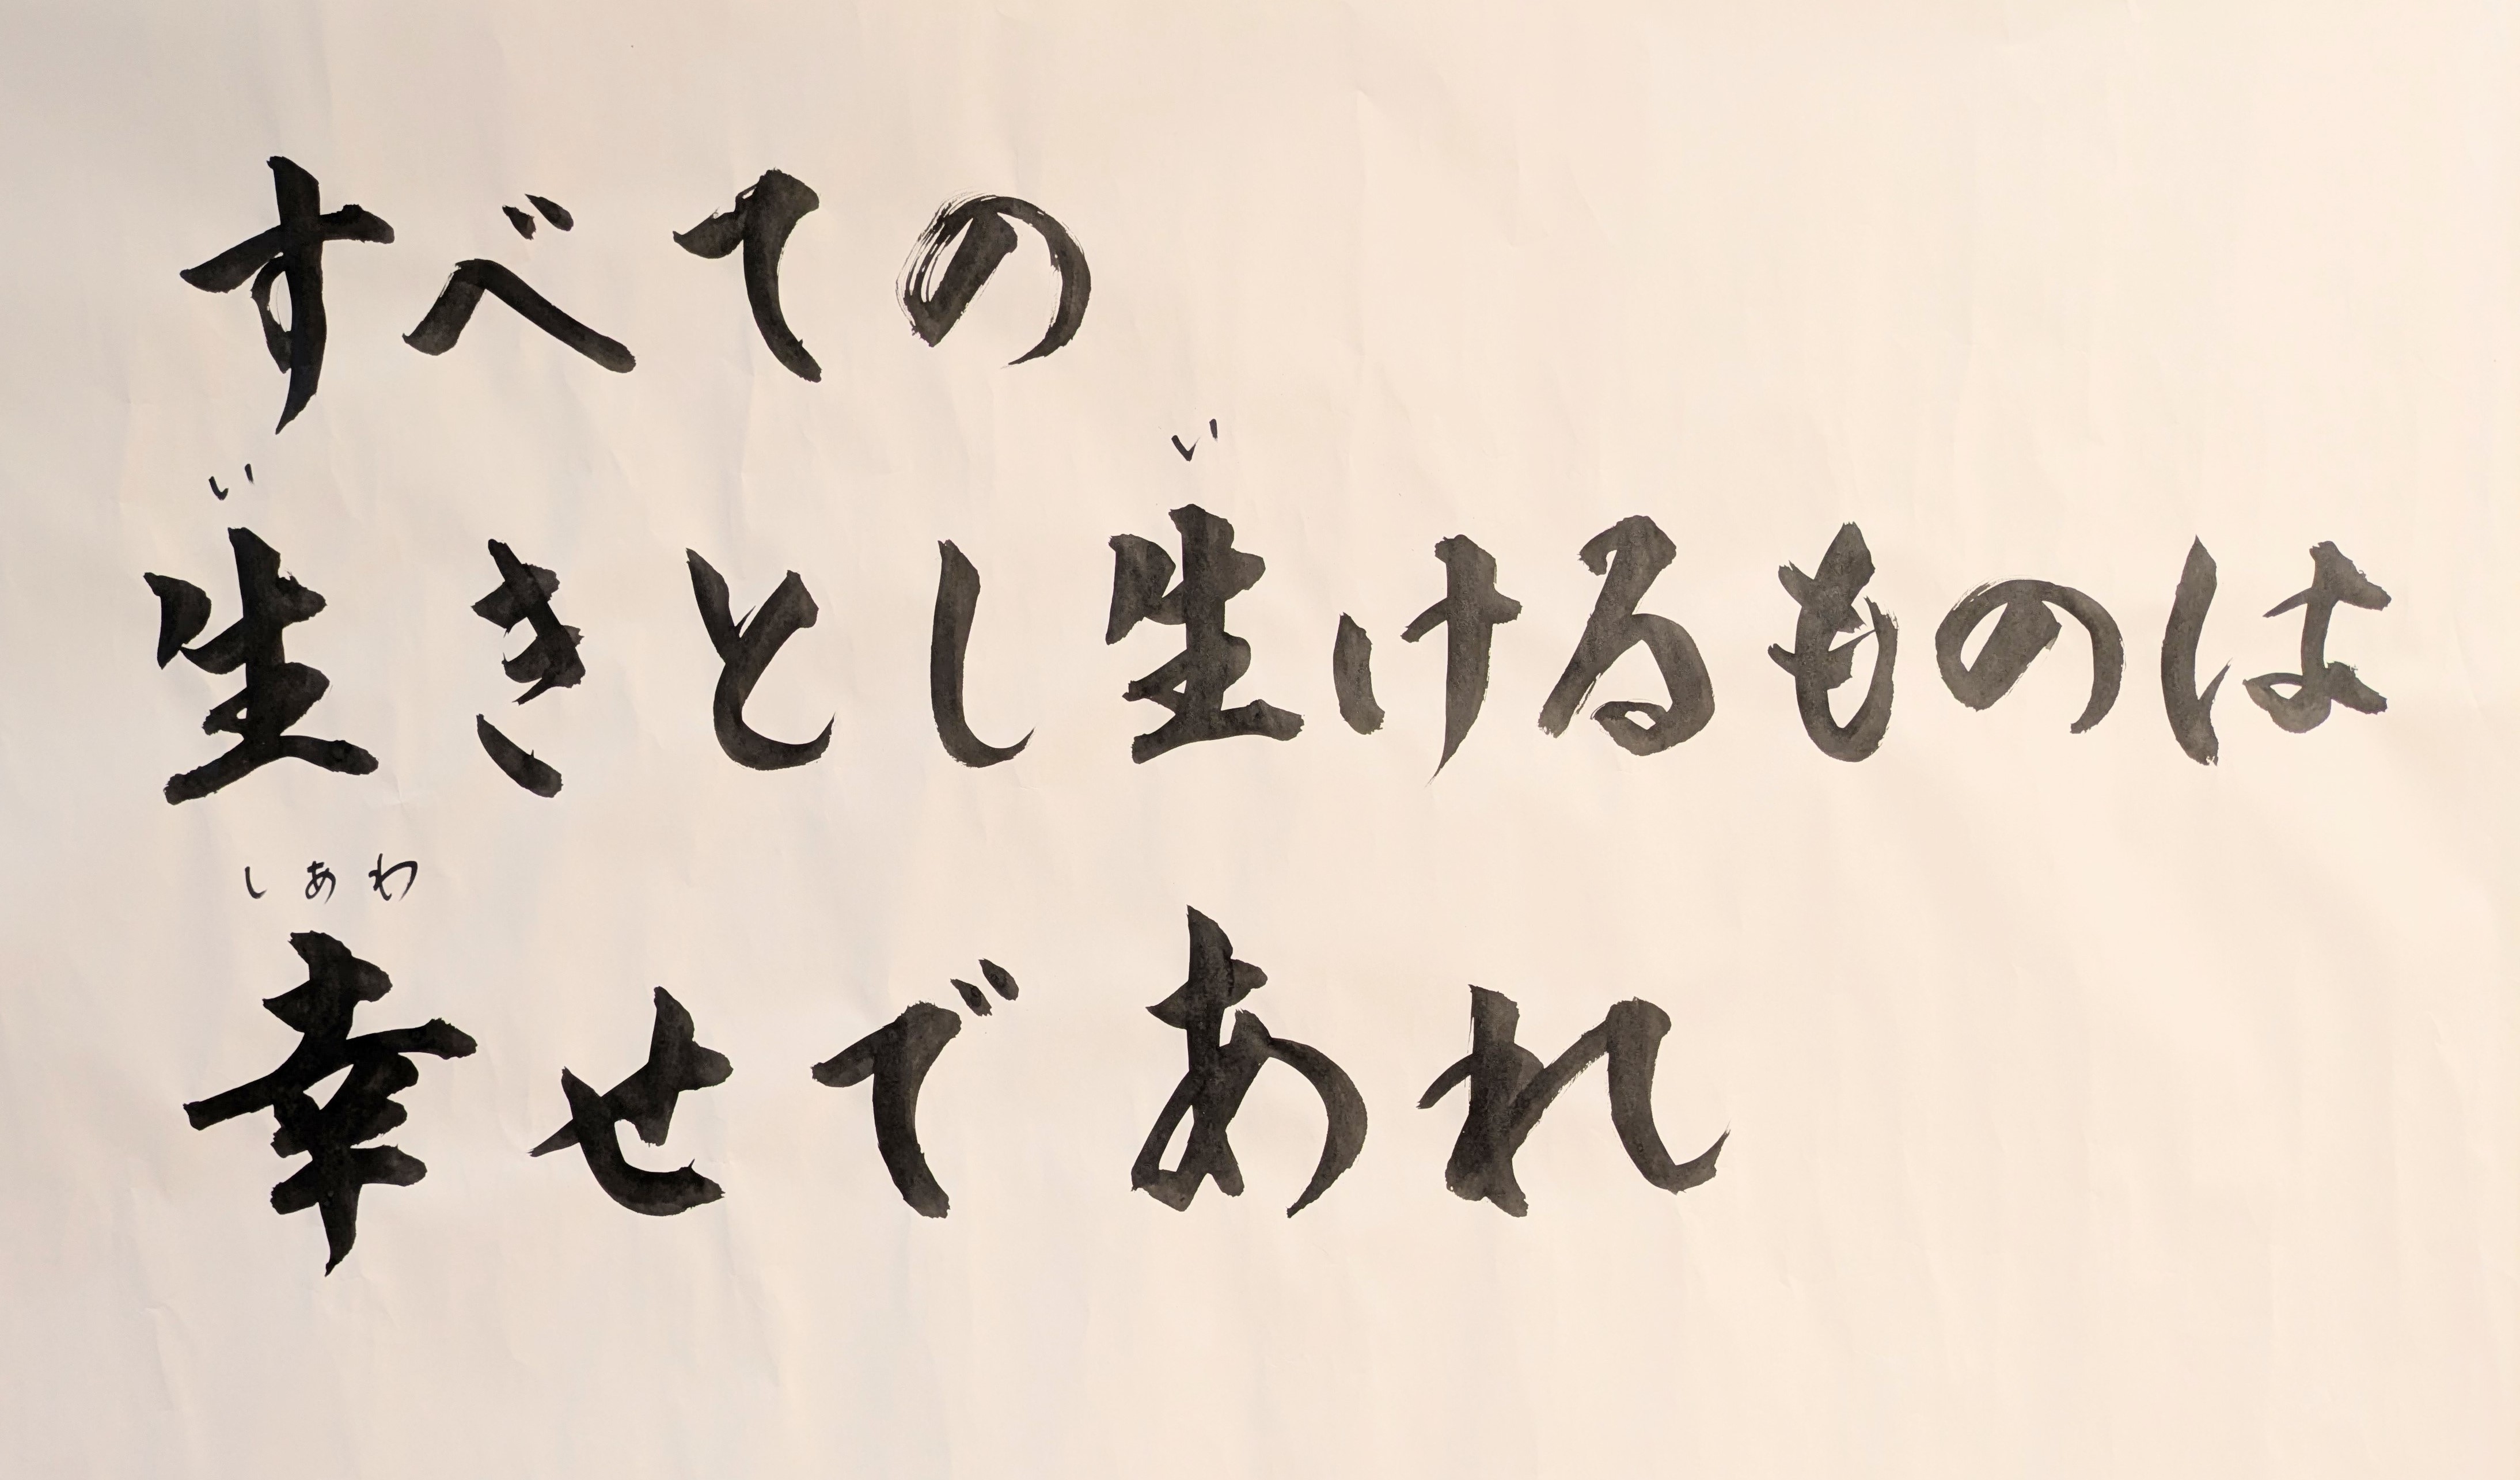 すべての
い い
生きとし生けるものは
しあわ
幸せであれ